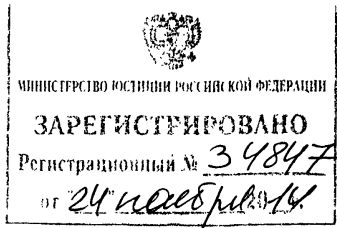 МИНИСТЕРСТВО ЮСТИЦИИ РОССИЙСКОЙ ФЕДЕРАЦИИ
ЗАРЕГИСТРИРОВАНО
Регистрационный № 34847
от "24" ноября 2014.